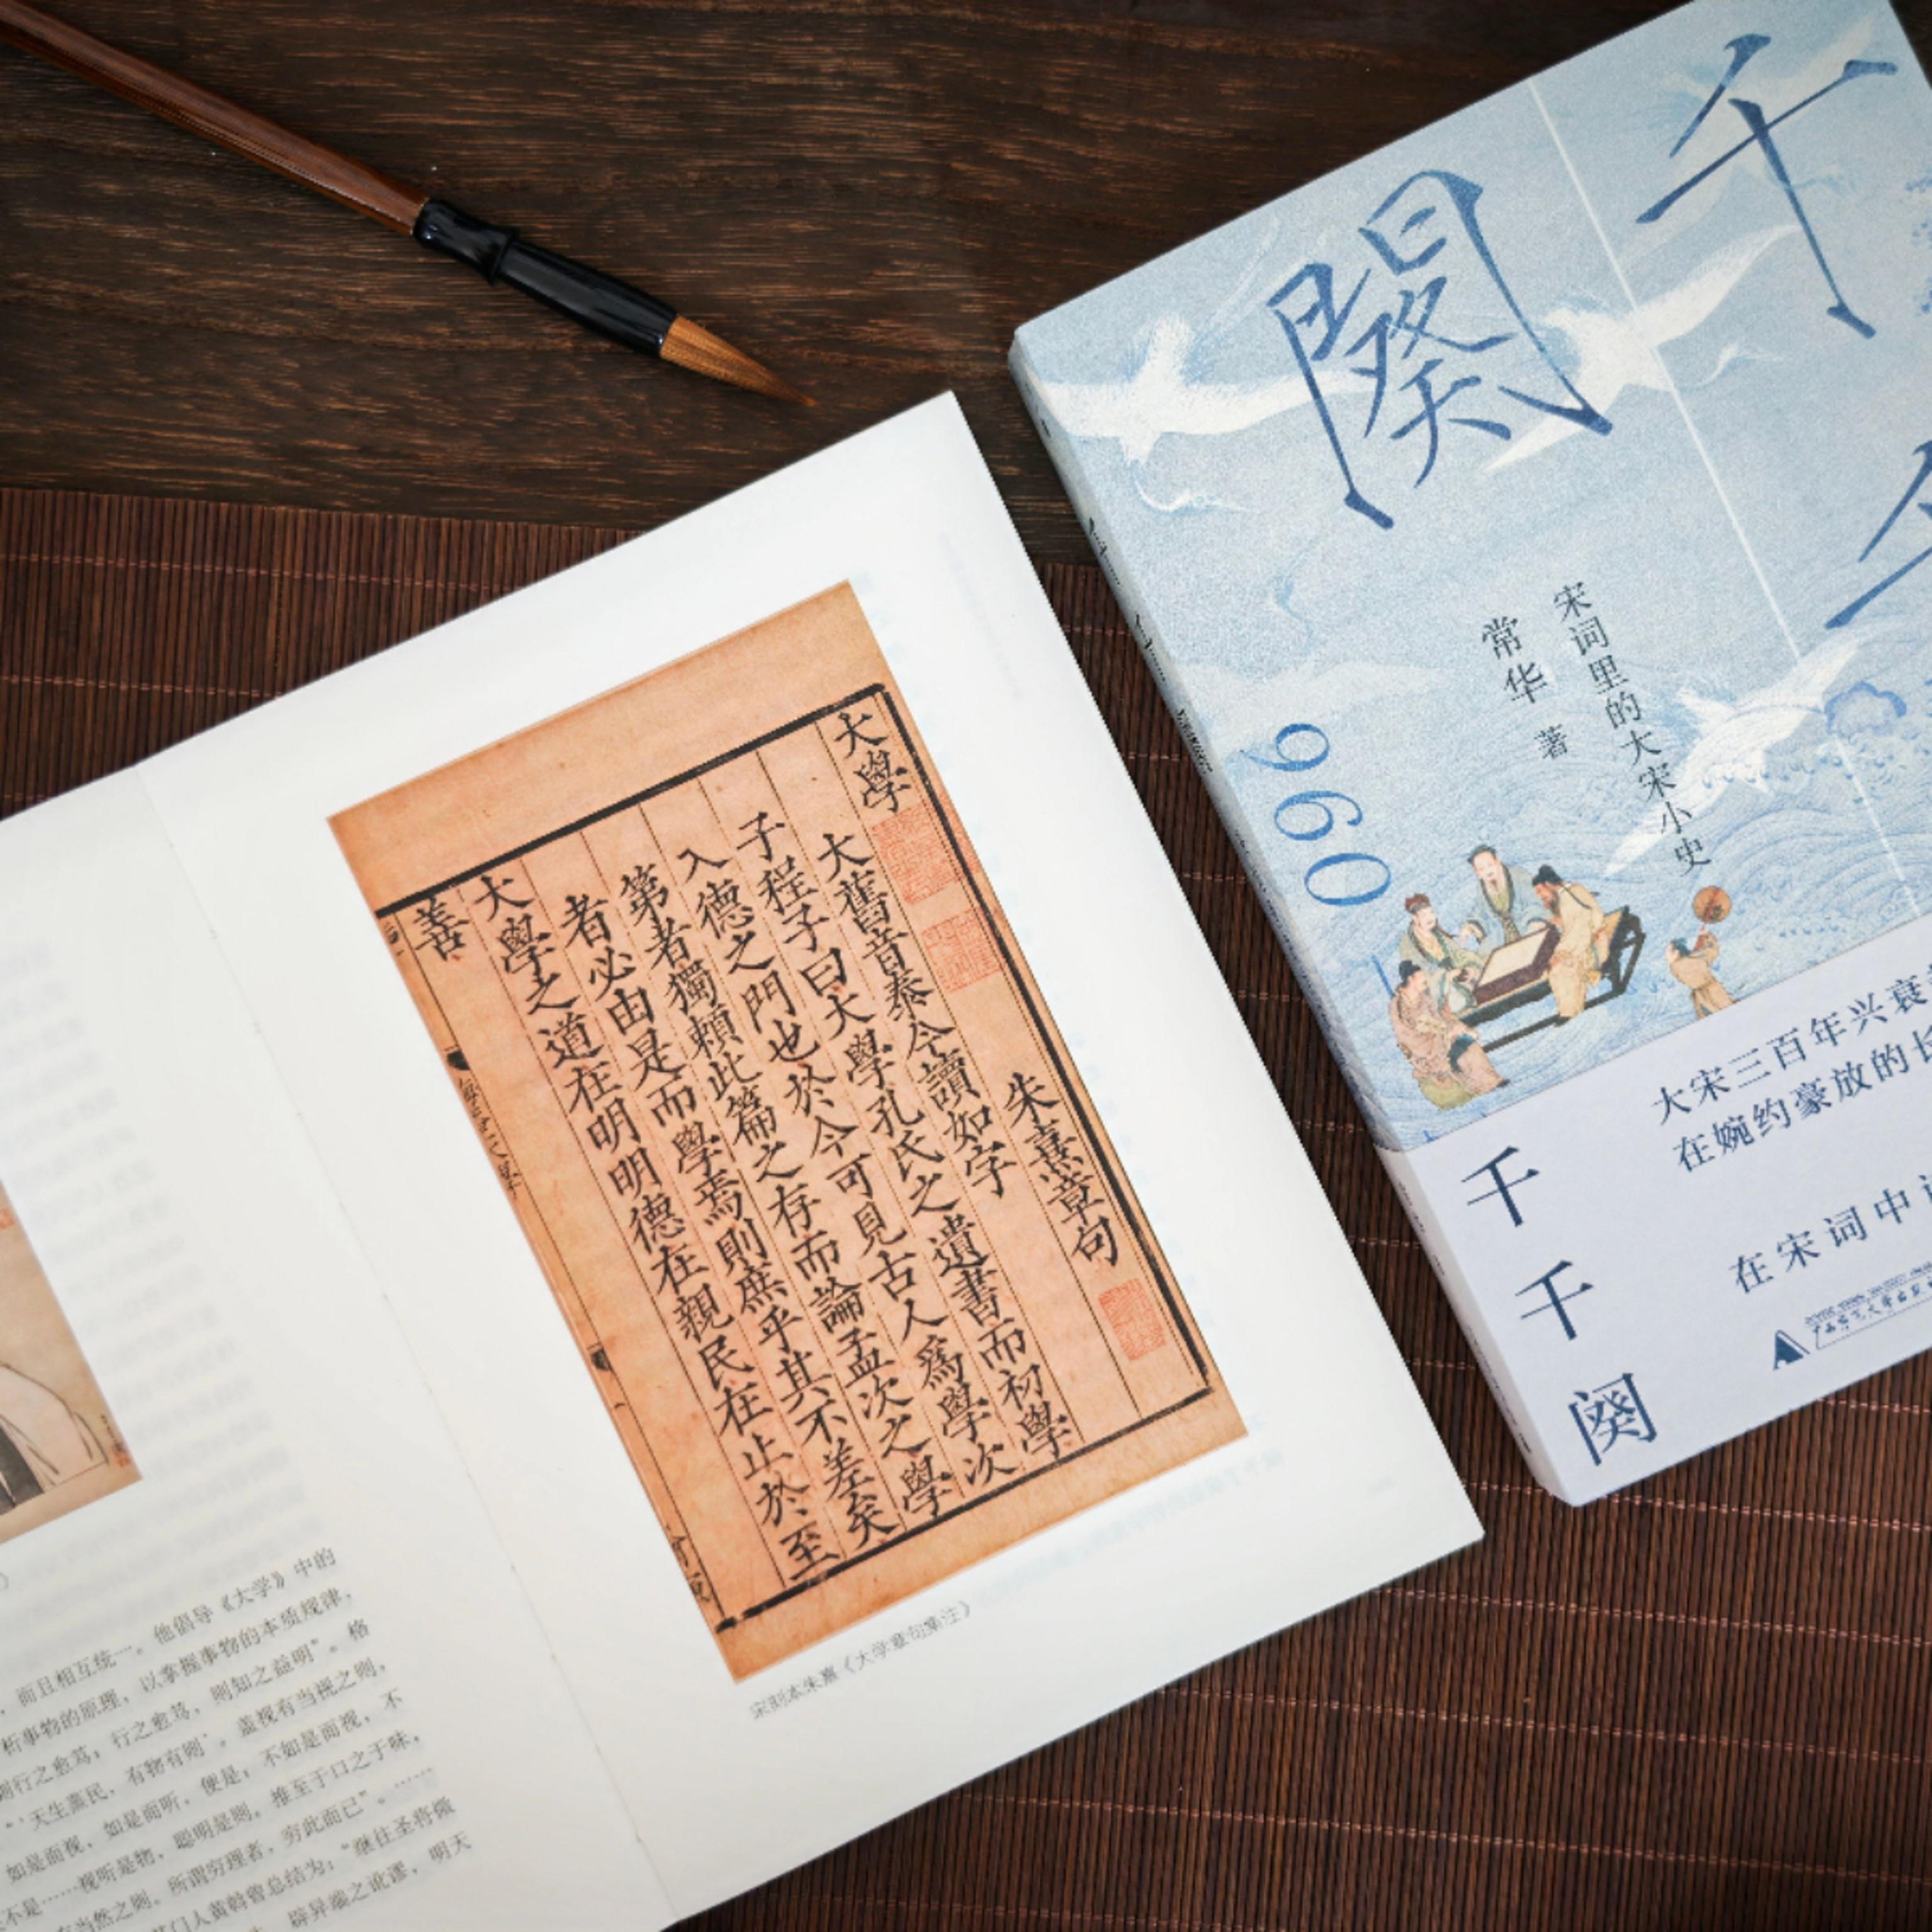 大學
朱熹章句
大舊音泰今讀如字
子程子曰大學孔氏之遺書而初學
入德之門也於今可見古人為學次
第者獨賴此篇之存而論孟次之學
者必由是而學焉則庶乎其不差矣
大學之道在明明德在親民在止於至
善
宋刻本朱熹《大学章句集注》
，而且相互统一。他倡导《大学》中的
析事物的原理，以掌握事物的本质规律，
则行之愈笃；行之愈笃，则知之益明”。格
“‘天生蒸民，有物有则’。盖视有当视之则，
如是而视，如是而听，便是；不如是而视，不
不是……视听是物，聪明是则。推至于口之于味，
有当然之则。所谓穷理者，穷此而已”。……
其门人黄榦曾总结为：“继往圣将微
，辟异端之讹谬，明天
千
闋
宋词里的大宋小史
常华 著
960
大宋三百年兴衰
在婉约豪放的长
在宋词中
千千阕